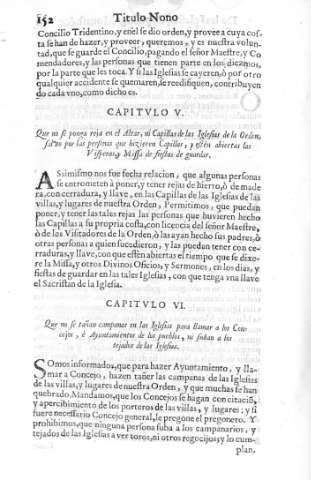 152 Titulo Nono
Concilio Tridentino, y en el se dio orden, y provee a cuya cos-
ta se han de hazer, y proveer, queremos, y es nuestra volun-
tad, que se guarde el Concilio, pagando el señor Maestre, y Co
mendadores, y las personas que tienen parte en los diezmos,
por la parte que les toca. Y si las Iglesias se cayeren, ò por otro
qualquier accidente se quemaren, se reedifiquen, contribuyen
do cada vno, como dicho es.
CAPITVLO V.
Que no se ponga reja en el Altar, ni Capillas de las Iglesias de la Orden,
salvo por las personas que hizieren Capillas, y estèn abiertas las
Visperas, y Missa de fiestas de guardar.
ASsimismo nos fue fecha relacion, que algunas personas
se entrometen à poner, y tener rejas de hierro, ò de made
ra, con cerradura, y llave, en las Capillas de las Iglesias de las
villas, y lugares de nuestra Orden, Permitimos, que puedan
poner, y tener las tales rejas las personas que huvieren hecho
las Capillas a su propria costa, con licencia del señor Maestre,
ò de los Visitadores de la Orden, ò las ayan hecho sus padres, ò
otras personas a quien sucedieron, y las puedan tener con ce-
rraduras, y llave, con que estèn abiertas el tiempo que se dixe-
re la Missa, y otros Divinos Oficios, y Sermones, en los dias, y
fiestas de guardar en las tales Iglesias, con que tenga vna llave
el Sacristan de la Iglesia.
CAPITVLO VI.
Que no se tañan campanas en las Iglesias para llamar a los Con-
cejos, ò Ayuntamientos de los pueblos, ni suban a los
tejados de las Iglesias.
SOmos informados, que para hazer Ayuntamiento, y lla-
mar a Concejo, hazen tañer las campanas de las Iglesias
de las villas, y lugares de nuestra Orden, y que muchas se han
quebrado. Mandamos, que los Concejos se hagan con citaciõ,
y apercibimiento de los porteros de las villas, y lugares: y si
fuere necessario Concejo general, le pregone el pregonero. Y
prohibimos, que ninguna persona suba a los campanarios, y
tejados de las Iglesias a ver toros, ni otros regocijos; y lo cum-
plan,